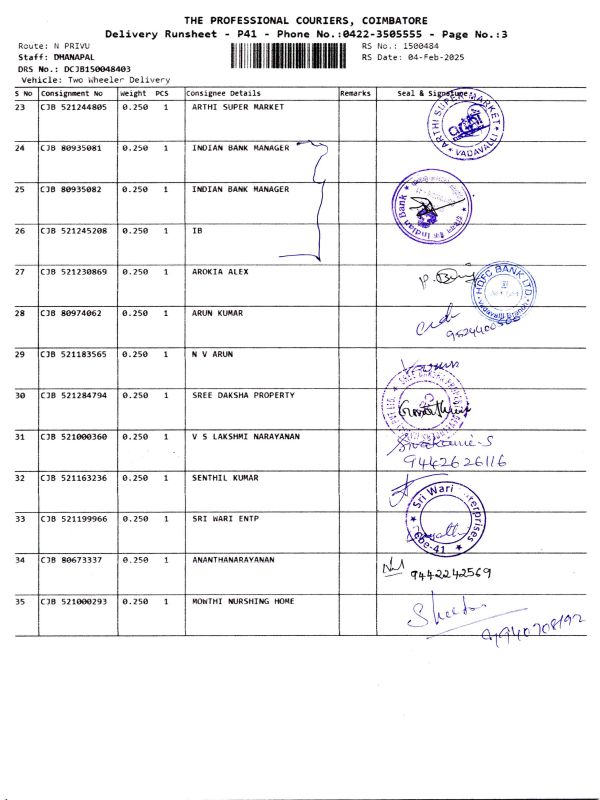 THE PROFESSIONAL COURIERS, COIMBATORE
Delivery Runsheet - P41 - Phone No.:0422-3505555 - Page No.:3
Route: N PRIVU
RS No.: 1500484
Staff: DHANAPAL
RS Date: 04-Feb-2025
DRS No.: DCJB150048403
Vehicle: Two Wheeler Delivery
S No Consignment No Weight PCS Consignee Details Remarks Seal & Signature
23 CJB 521244805 0.250 1 ARTHI SUPER MARKET
ARTHI SUPER MARKET
VADAVALLI
24 CJB 80935081 0.250 1 INDIAN BANK MANAGER
25 CJB 80935082 0.250 1 INDIAN BANK MANAGER
Indian Bank
26 CJB 521245208 0.250 1 IB
27 CJB 521230869 0.250 1 AROKIA ALEX
HDFC BANK LTD
28 CJB 80974062 0.250 1 ARUN KUMAR
29 CJB 521183565 0.250 1 N V ARUN
30 CJB 521284794 0.250 1 SREE DAKSHA PROPERTY
SREE DAKSHA
31 CJB 521000360 0.250 1 V S LAKSHMI NARAYANAN
9442626116
32 CJB 521163236 0.250 1 SENTHIL KUMAR
33 CJB 521199966 0.250 1 SRI WARI ENTP
Sri Wari Enterprises
Cbe-41
34 CJB 80673337 0.250 1 ANANTHANARAYANAN
9442242569
35 CJB 521000293 0.250 1 MOWTHI NURSHING HOME